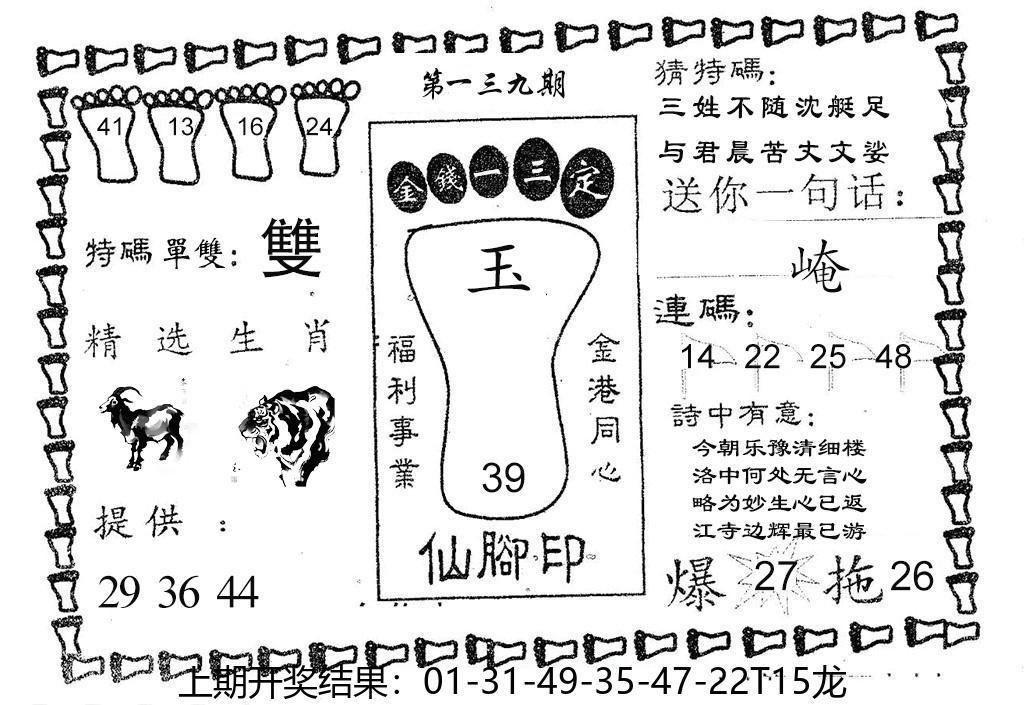 第一三九期
41 13 16 24
特碼單雙：雙
精选生肖
提供：
29 36 44
金錢一三定
玉
福利事業
金港同心
39
仙腳印
猜特碼：
三姓不随沈艇足
与君晨苦丈文娑
送你一句话：
崦
連碼：
14 22 25 48
詩中有意：
今朝乐豫清细楼
洛中何处无言心
略为妙生心已返
江寺边辉最已游
爆 27 拖 26
上期开奖结果：01-31-49-35-47-22T15龙